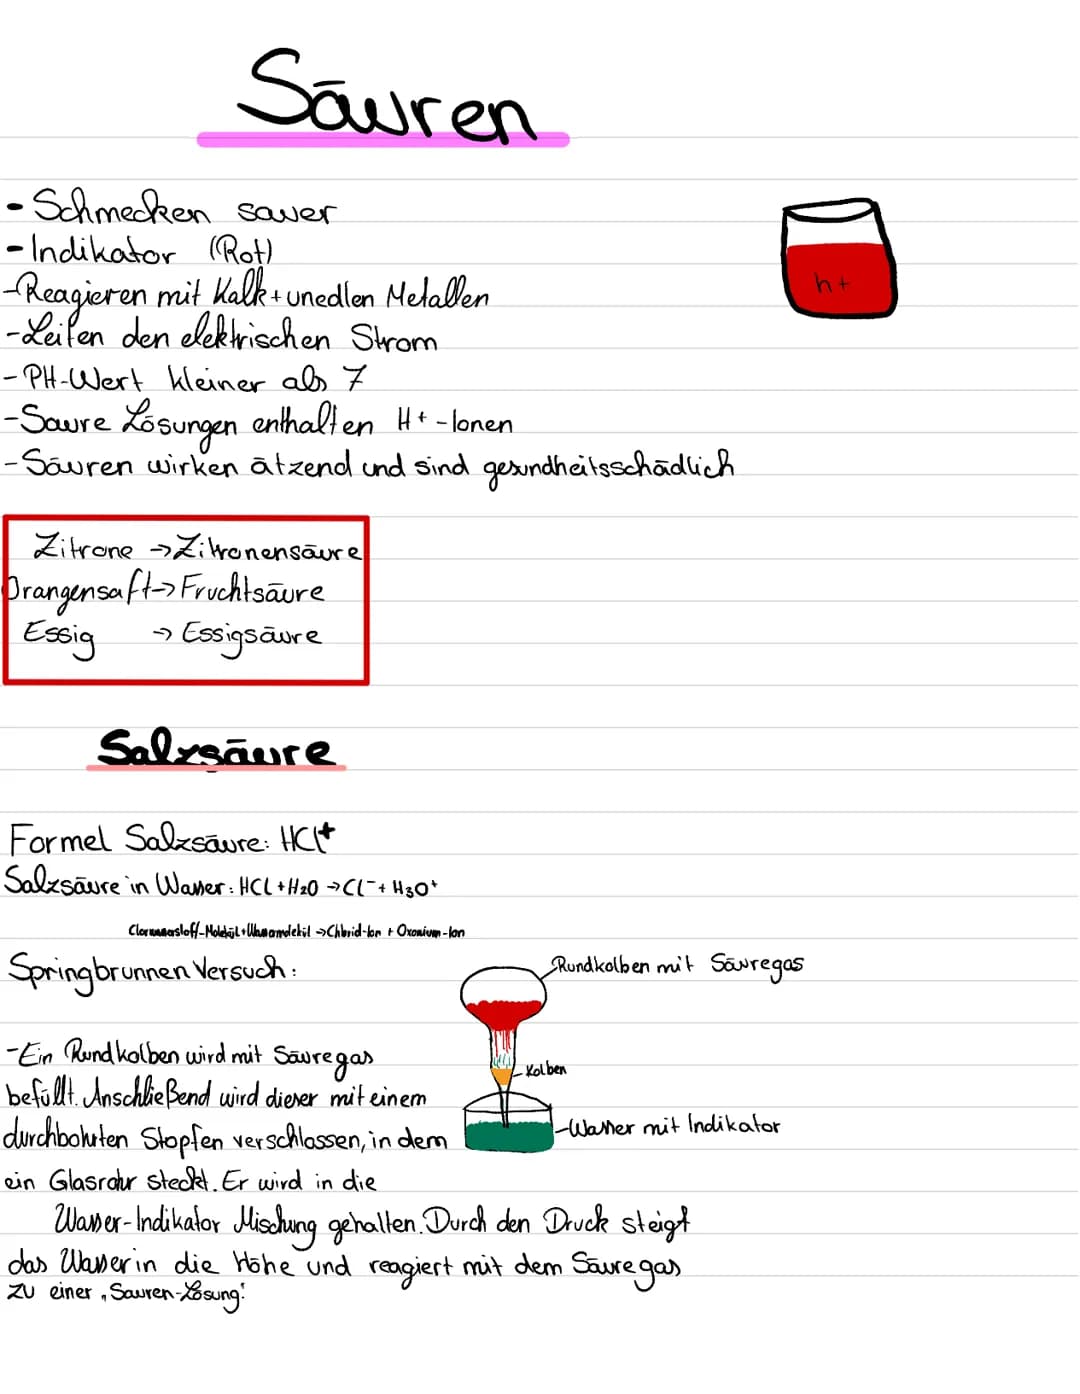 Säuren
- Schmecken sauer
- Indikator (Rot)
h+
- Reagieren mit Kalk + unedlen Metallen
- Leiten den elektrischen Strom
- PH-Wert kleiner als 7
- Saure Lösungen enthalten H+ -Ionen
- Säuren wirken ätzend und sind gesundheitsschädlich
Zitrone -> Zitronensäure
Orangensaft -> Fruchtsäure
Essig -> Essigsäure
Salzsäure
Formel Salzsäure: HCl+
Salzsäure in Wasser: HCL + H2O -> Cl⁻ + H3O⁺
-Molekül + -> Chlorid-Ion + Oxonium-Ion
Springbrunnen Versuch:
Rundkolben mit Säuregas
- Kolben
- Wasser mit Indikator
- Ein Rundkolben wird mit Säuregas
befüllt. Anschließend wird dieser mit einem
durchbohrten Stopfen verschlossen, in dem
ein Glasrohr steckt. Er wird in die
Wasser-Indikator Mischung gehalten. Durch den Druck steigt
das Wasser in die Höhe und reagiert mit dem Säuregas
zu einer „Sauren-Lösung".